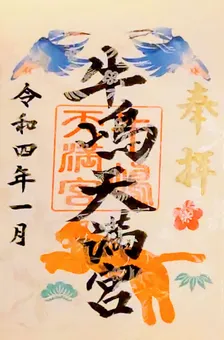 奉拝
牛嶋天満宮
令和四年一月
天満宮